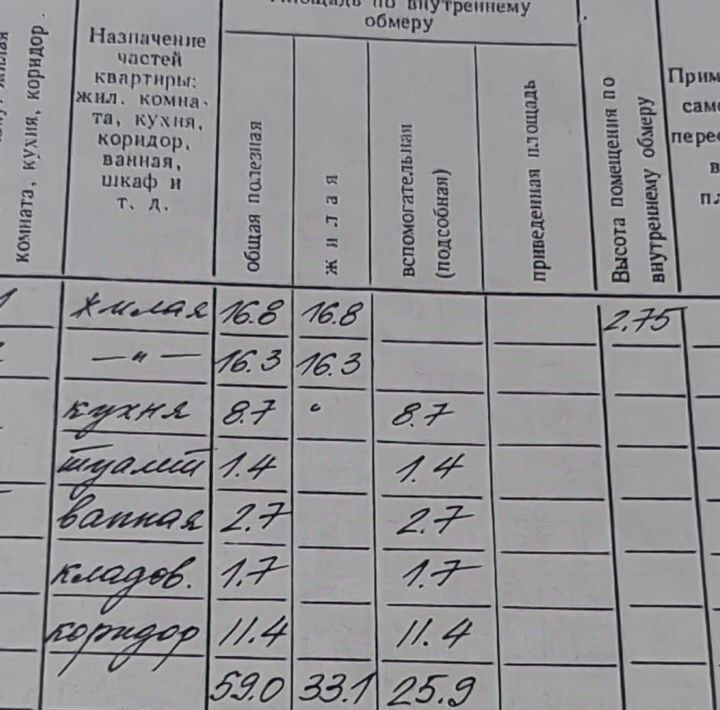 Площадь по внутреннему
обмеру
жилая
комната, кухня, коридор.
Назначение
частей
квартиры:
жил. комна-
та, кухня,
коридор,
ванная,
шкаф и
т. д.
общая полезная
жилая
вспомогательная
(подсобная)
приведенная площадь
Высота помещения по
внутреннему обмеру
Прим
само
перео
в
пл
1 жилая 16.8 16.8 2.75
—"— 16.3 16.3
кухня 8.7 8.7
туалет 1.4 1.4
ванная 2.7 2.7
кладов. 1.7 1.7
коридор 11.4 11.4
59.0 33.1 25.9